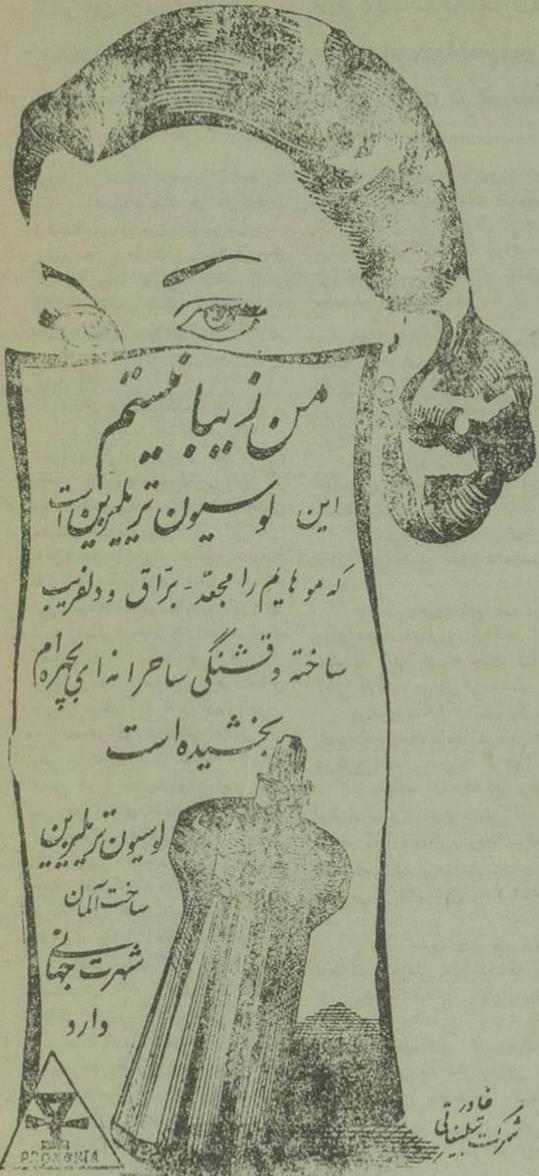 من زیبا نیستم
این لوسیون تریلیزین است
که موهایم را مجعّد - برّاق و دلفریب
ساخته و قشنگی ساحرانه ای بچهره ام
بخشیده است
لوسیون تریلیزین
ساخت آلمان
شهرت جهانی
دارد
PROMONTA
خاور
شرکت تبلیغاتی